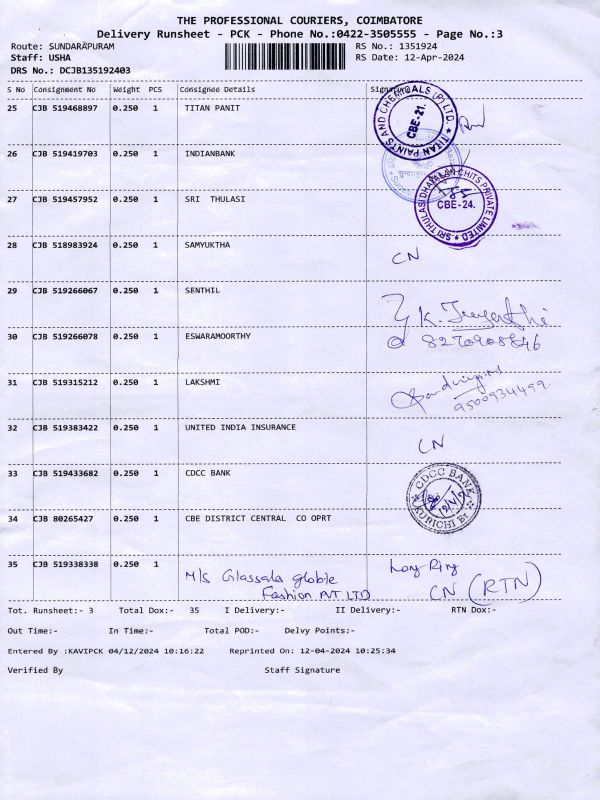 THE PROFESSIONAL COURIERS, COIMBATORE
Delivery Runsheet - PCK - Phone No.:0422-3505555 - Page No.:3
Route: SUNDARAPURAM RS No.: 1351924
Staff: USHA RS Date: 12-Apr-2024
DRS No.: DCJB135192403
S No Consignment No Weight PCS Consignee Details
25 CJB 519468897 0.250 1 TITAN PANIT
TITAN PAINTS AND CHEMICALS (P) LTD. CBE-21.
26 CJB 519419703 0.250 1 INDIANBANK
27 CJB 519457952 0.250 1 SRI THULASI
SRI THULASI DHARALAN CHITS PRIVATE LIMITED CBE-24.
28 CJB 518983924 0.250 1 SAMYUKTHA CN
29 CJB 519266067 0.250 1 SENTHIL
30 CJB 519266078 0.250 1 ESWARAMOORTHY 8270908846
31 CJB 519315212 0.250 1 LAKSHMI 9500934499
32 CJB 519383422 0.250 1 UNITED INDIA INSURANCE CN
33 CJB 519433682 0.250 1 CDCC BANK
CDCC BANK KURICHI Br
34 CJB 80265427 0.250 1 CBE DISTRICT CENTRAL CO OPRT
35 CJB 519338338 0.250 1
M/S Glassala globle
Fashion PVT LTD CN (RTN)
Tot. Runsheet:- 3 Total Dox:- 35 I Delivery:- II Delivery:- RTN Dox:-
Out Time:- In Time:- Total POD:- Delvy Points:-
Entered By :KAVIPCK 04/12/2024 10:16:22 Reprinted On: 12-04-2024 10:25:34
Verified By Staff Signature